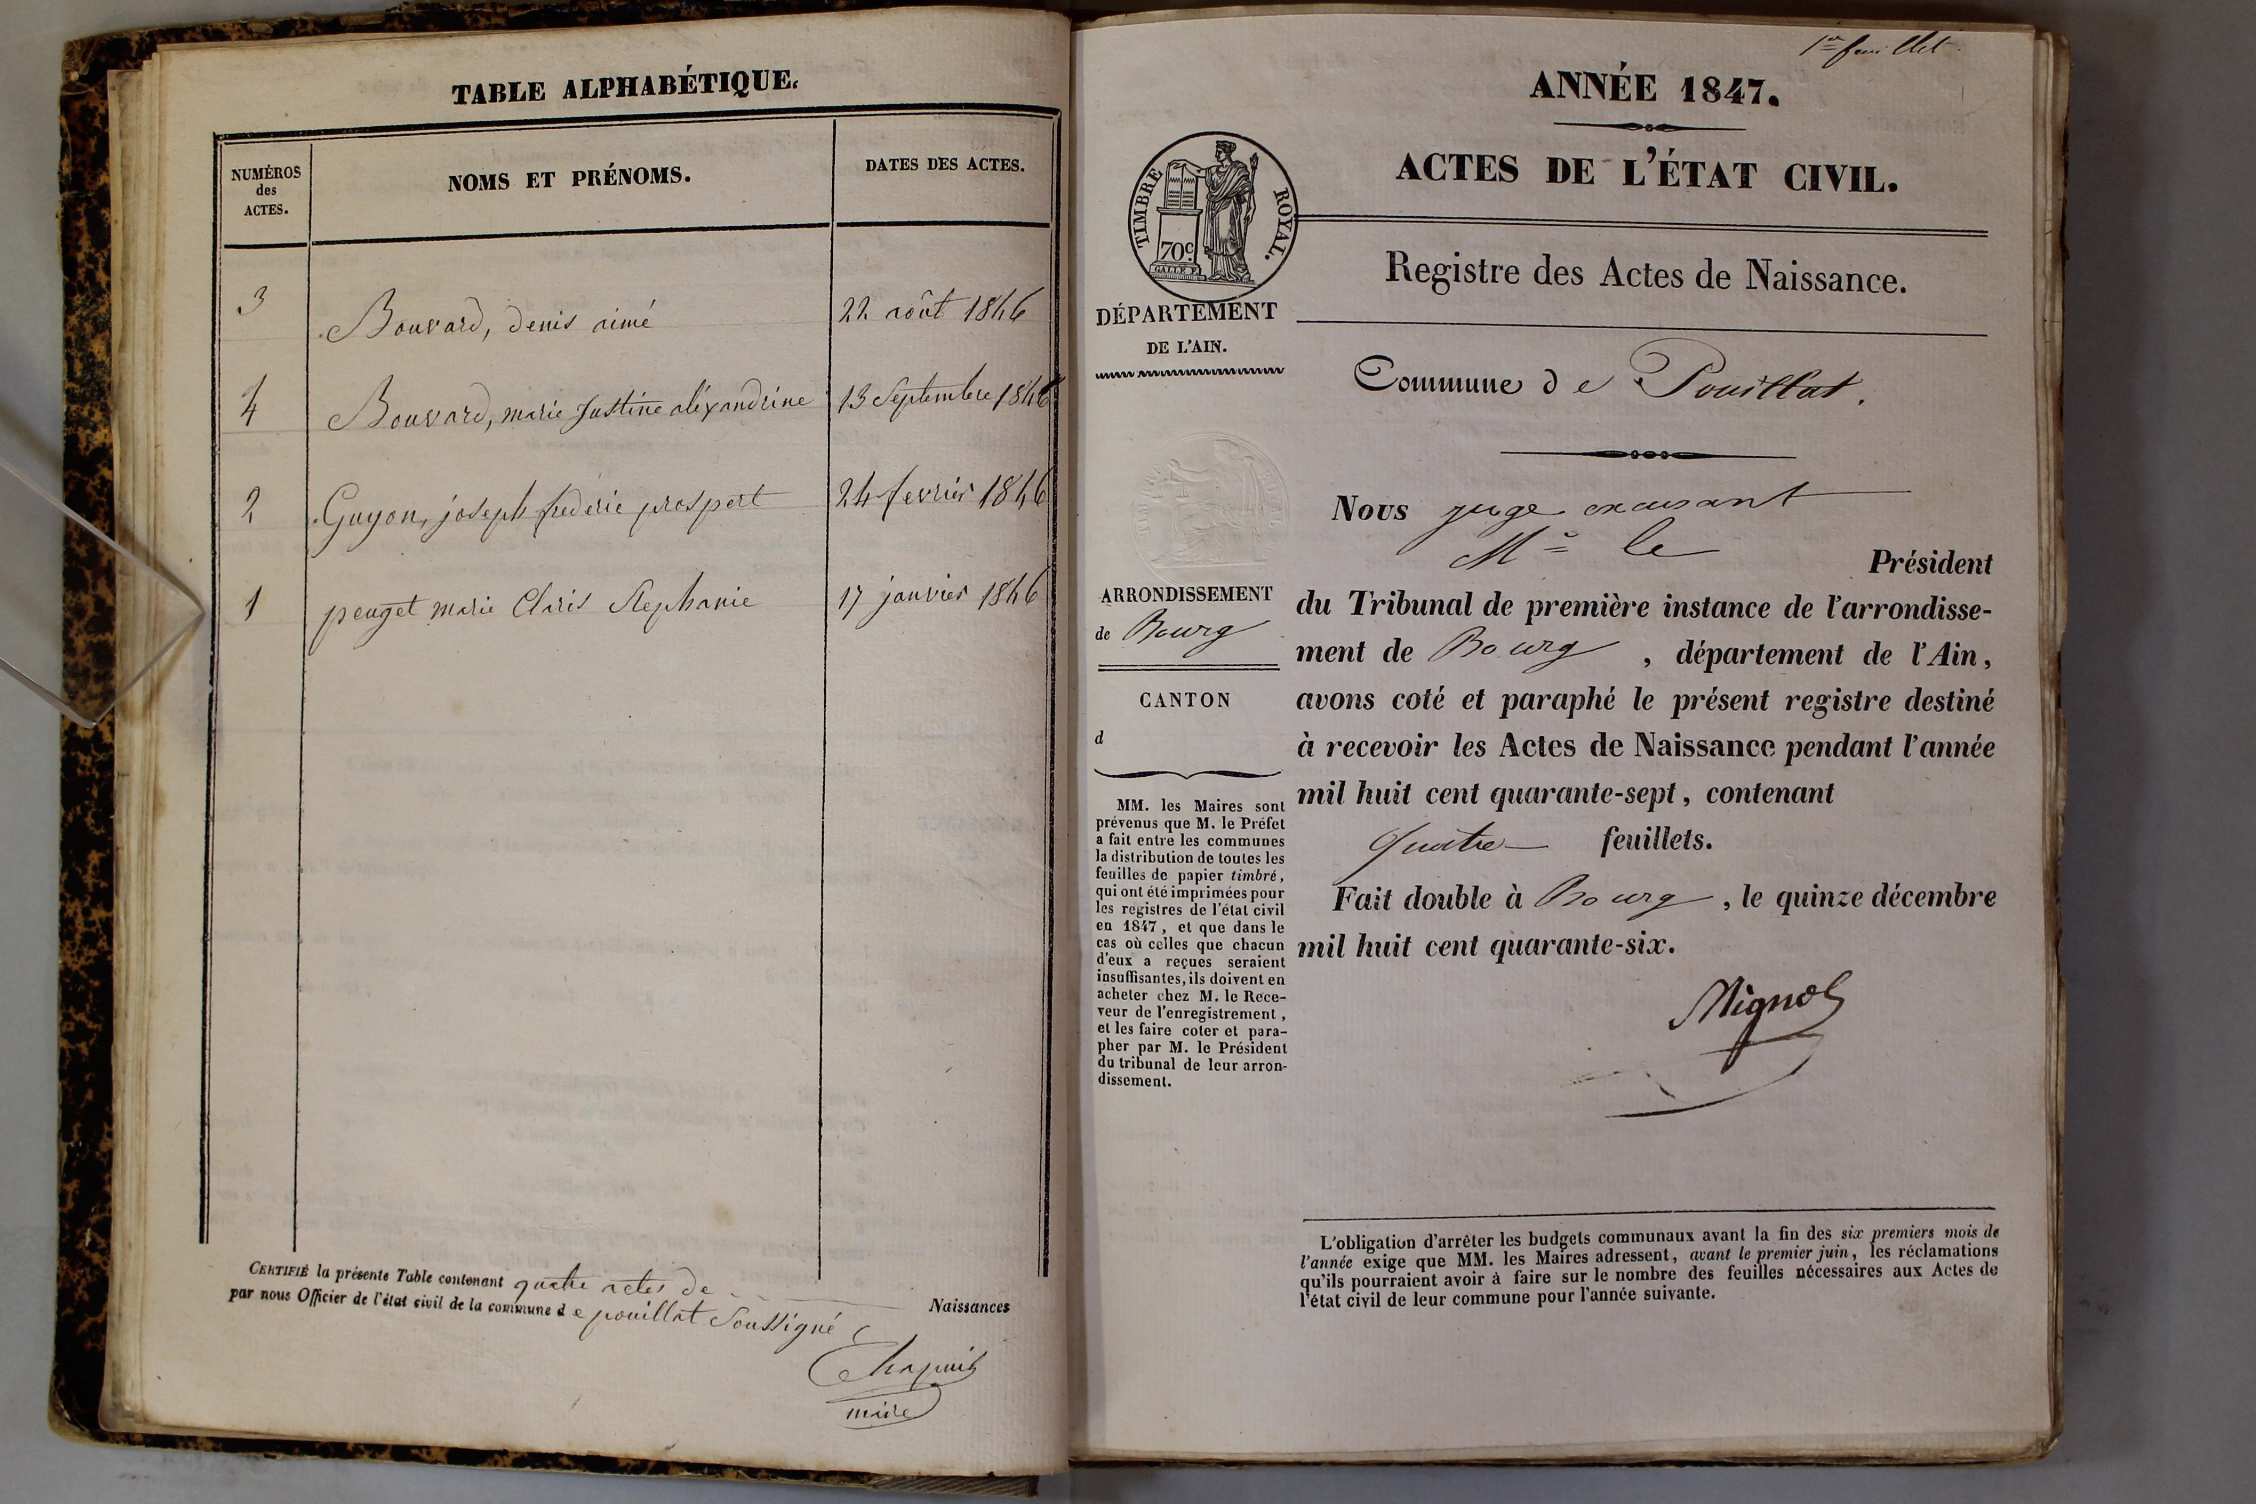 TABLE ALPHABÉTIQUE.
NUMÉROS
des
ACTES.
NOMS ET PRÉNOMS.
DATES DES ACTES.
3 Bouvard, denis aimé 22 août 1846
4 Bouvard, marie Justine aléxandrine 13 Septembre 1846
2 Guyon, joseph frederic prospert 24 fevrier 1846
1 peuget marie Claris Stephanie 17 janvier 1846
CERTIFIÉ la présente Table contenant quatre actes de Naissances
par nous Officier de l'état civil de la commune d e pouillat Soussigné
Chapuis
maire
1er feuillet
ANNÉE 1847.
ACTES DE L'ÉTAT CIVIL.
TIMBRE ROYAL.
70c
GALLE F.
Registre des Actes de Naissance.
DÉPARTEMENT
DE L'AIN.
Commune d e Pouillat.
ARRONDISSEMENT
de Bourg
CANTON
d
MM. les Maires sont
prévenus que M. le Préfet
a fait entre les communes
la distribution de toutes les
feuilles de papier timbré,
qui ont été imprimées pour
les registres de l'état civil
en 1847, et que dans le
cas où celles que chacun
d'eux a reçues seraient
insuffisantes, ils doivent en
acheter chez M. le Rece-
veur de l'enregistrement,
et les faire coter et para-
pher par M. le Président
du tribunal de leur arron-
dissement.
Nous juge
Mr le
Président
du Tribunal de première instance de l'arrondisse-
ment de Bourg, département de l'Ain,
avons coté et paraphé le présent registre destiné
à recevoir les Actes de Naissance pendant l'année
mil huit cent quarante-sept, contenant
quatre feuillets.
Fait double à Bourg, le quinze décembre
mil huit cent quarante-six.
L'obligation d'arrêter les budgets communaux avant la fin des six premiers mois de
l'année exige que MM. les Maires adressent, avant le premier juin, les réclamations
qu'ils pourraient avoir à faire sur le nombre des feuilles nécessaires aux Actes de
l'état civil de leur commune pour l'année suivante.